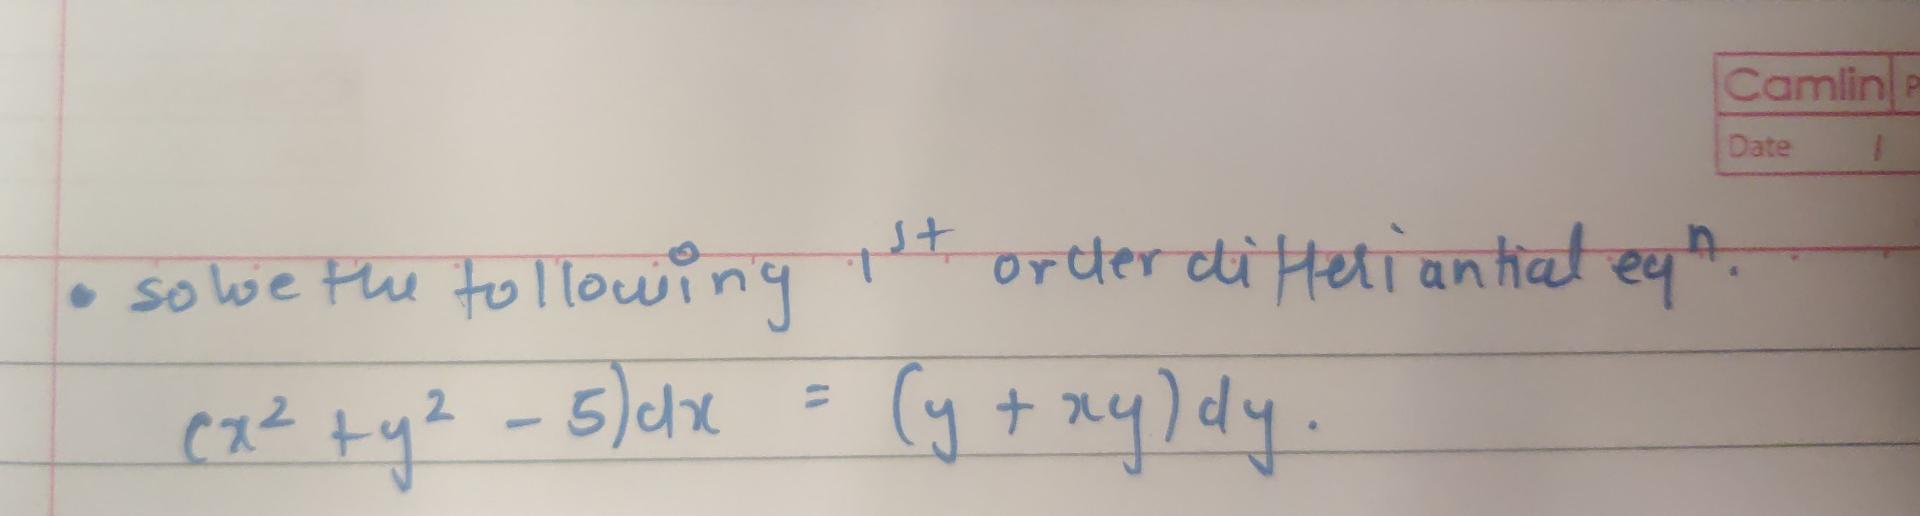 Camlin P
Date /
• solve the following 1st order differiantial eqn.
(x² + y² - 5)dx = (y + xy)dy.